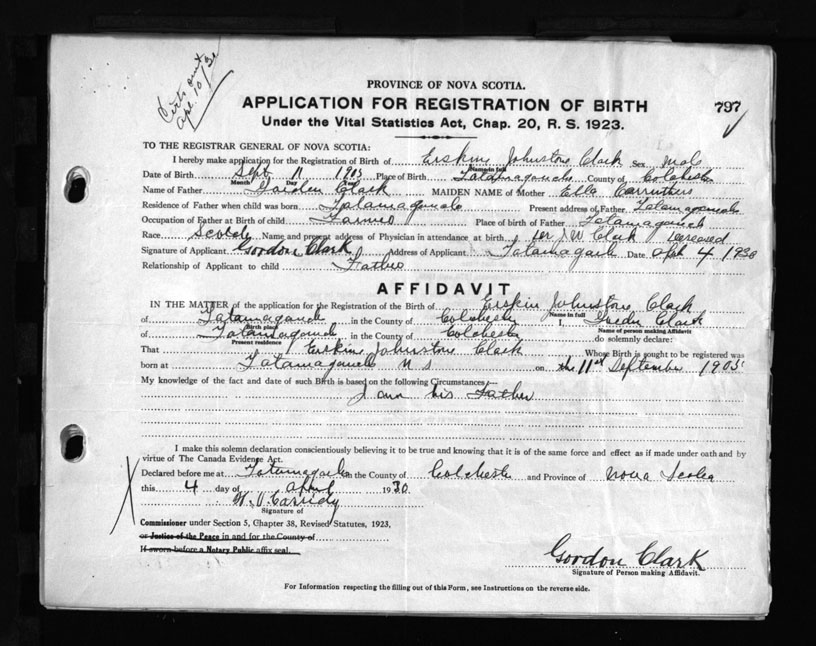 Certs out
Apr. 10/30
PROVINCE OF NOVA SCOTIA.
APPLICATION FOR REGISTRATION OF BIRTH
797
Under the Vital Statistics Act, Chap. 20, R. S. 1923.
TO THE REGISTRAR GENERAL OF NOVA SCOTIA:
I hereby make application for the Registration of Birth of Erskine Johnstone Clark Sex Male
Name in full
Date of Birth Sept 11 1905 Place of Birth Tatamagouche County of Colchester
Month Day Year
Name of Father Gordon Clark MAIDEN NAME of Mother Ella Carruthers
Residence of Father when child was born Tatamagouche Present address of Father Tatamagouche
Occupation of Father at Birth of child Farmer Place of birth of Father Tatamagouche
Race Scotch Name and present address of Physician in attendance at birth Dr J W Clark Deceased
Signature of Applicant Gordon Clark Address of Applicant Tatamagouche Date April 4 1930
Relationship of Applicant to child Father
AFFIDAVIT
IN THE MATTER of the application for the Registration of the Birth of Erskine Johnstone Clark
Name in full
of Tatamagouche in the County of Colchester I, Clark
Birth place Name of person making Affidavit
of Tatamagouche in the County of Colchester do solemnly declare:
Present residence
That Erskine Johnstone Clark Whose Birth is sought to be registered was
born at Tatamagouche N S on the 11th September 1905
My knowledge of the fact and date of such Birth is based on the following Circumstances:—
I am his Father
I make this solemn declaration conscientiously believing it to be true and knowing that it is of the same force and effect as if made under oath and by
virtue of The Canada Evidence Act.
Declared before me at Tatamagouche in the County of Colchester and Province of Nova Scotia
this 4 day of April 1930
W. V. Cassidy
Signature of
Commissioner under Section 5, Chapter 38, Revised Statutes, 1923,
or Justice of the Peace in and for the County of
If sworn before a Notary Public affix seal.
Gordon Clark
Signature of Person making Affidavit.
For Information respecting the filling out of this Form, see Instructions on the reverse side.